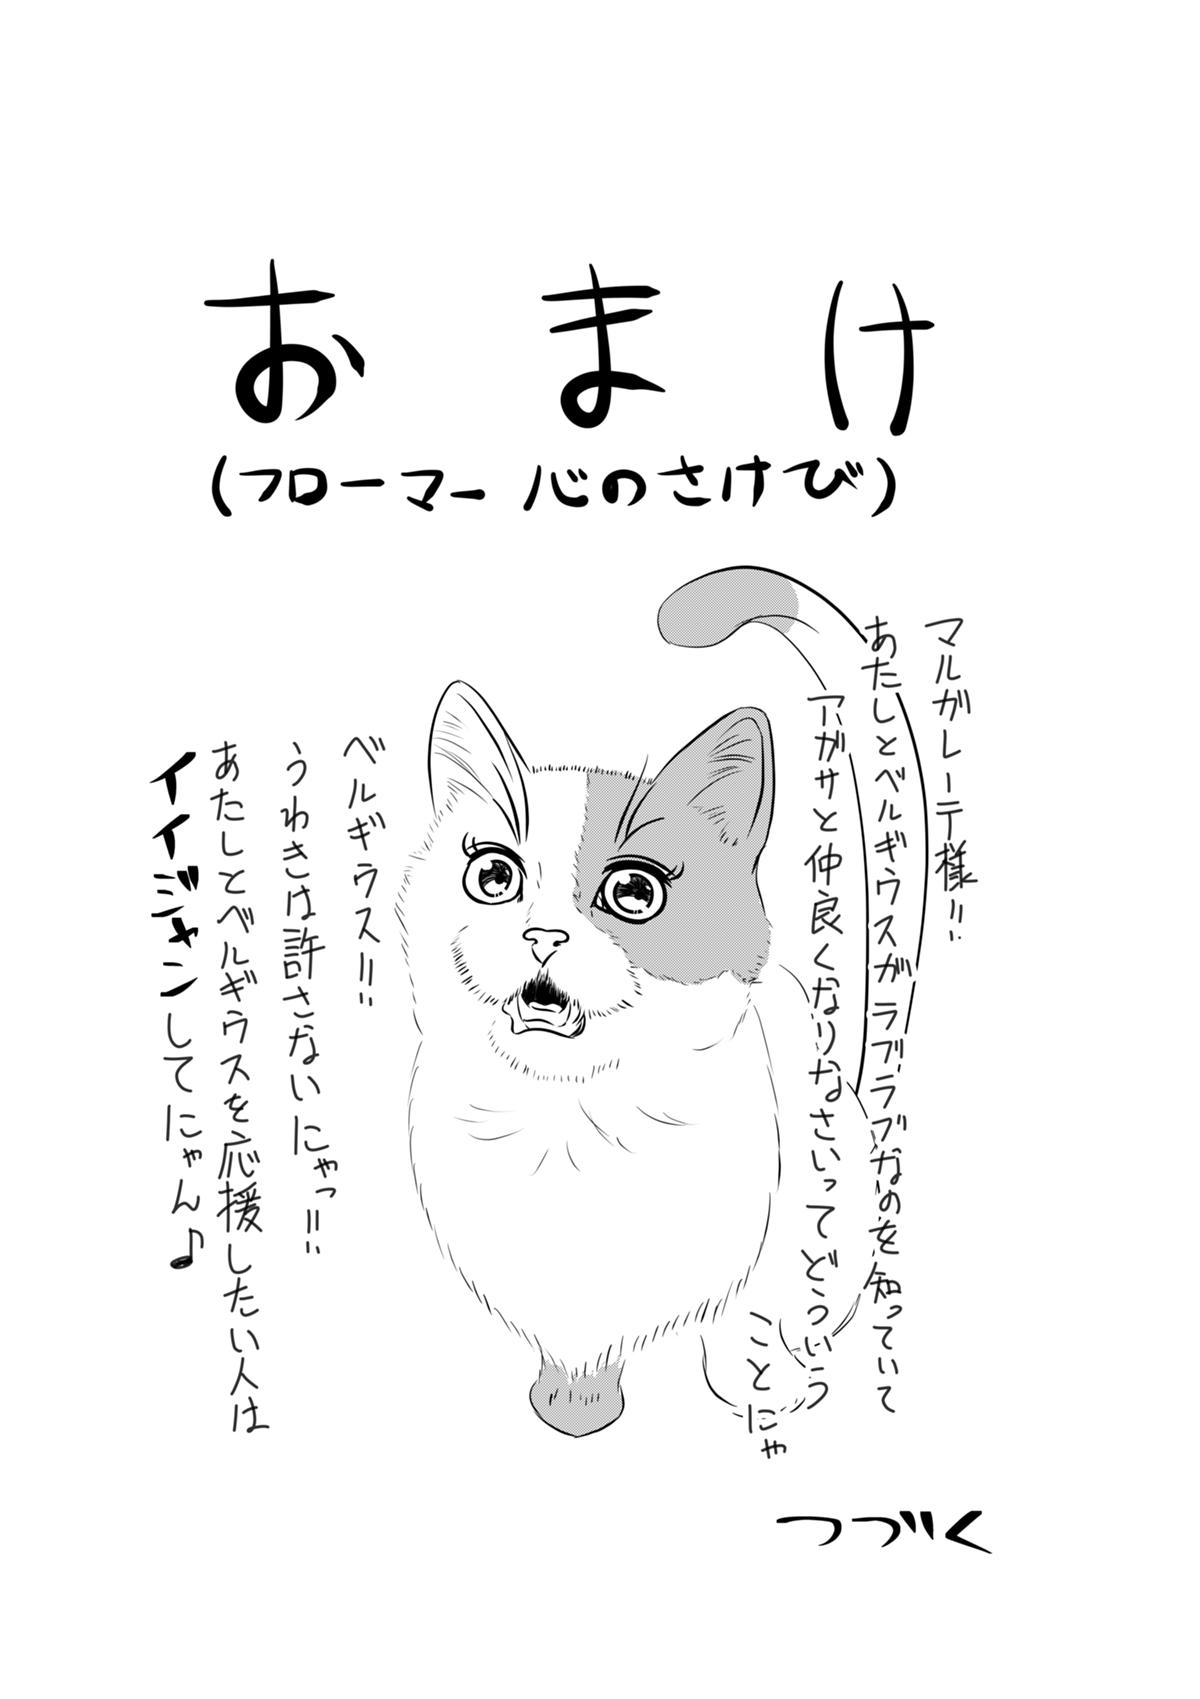 おまけ
(フローマー 心のさけび)
マルガレーテ様!!
あたしとベルギウスがラブラブなのを知っていて
アガサと仲良くなりなさいってどういう
ことにゃ
ベルギウス!!
うわきは許さないにゃっ!!
あたしとベルギウスを応援したい人は
イイジャンしてにゃん♪
つづく